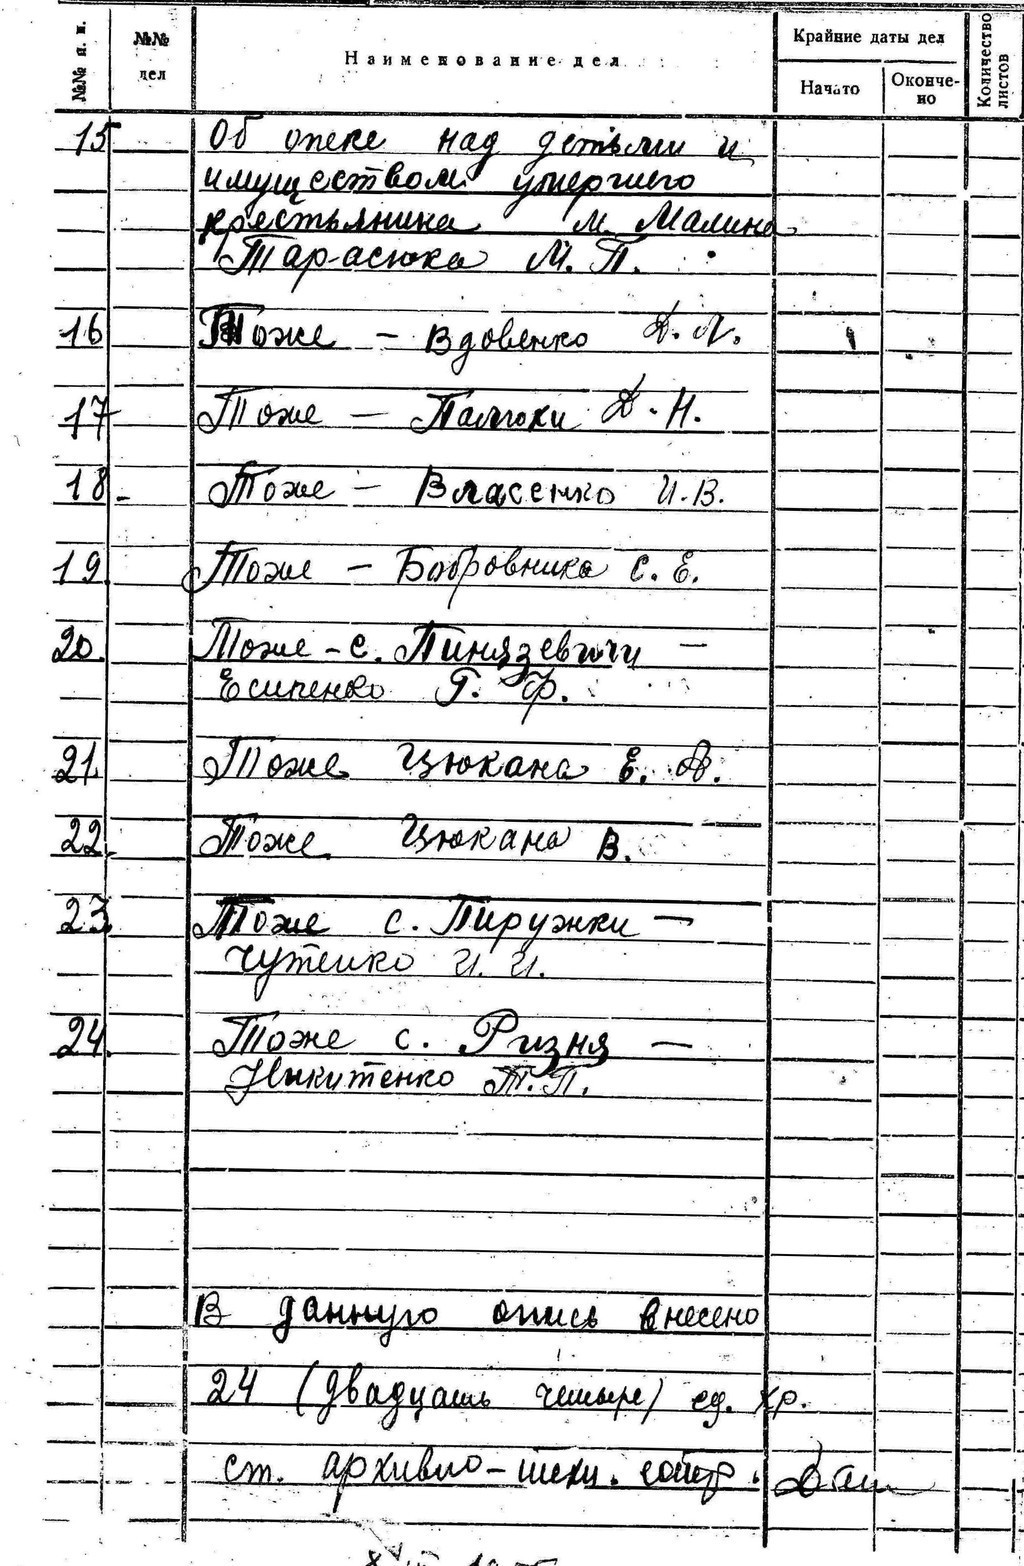 №№ п. п.
№№ дел
Наименование дел
Крайние даты дел
Начато
Окончено
Количество листов
15 Об опеке над детьми и
имуществом умершего
крестьянина м. Малина
Тарасюка М. П.
16 Тоже - Вдовенко Д. Л.
17 Тоже - Палюхи Д. Н.
18 Тоже - Власенко И. В.
19 Тоже - Бобровника С. Е.
20. Тоже - с. Пинязевичи -
Есипенко Г. Ф.
21. Тоже Цюкана Е. А.
22. Тоже Цюкана В.
23. Тоже с. Пиружки -
Чутенко И. И.
24. Тоже с. Ризня -
Никитенко Т. П.
В данную опись внесено
24 (двадцать четыре) ед. хр.
ст. архивно-техн. сотр.